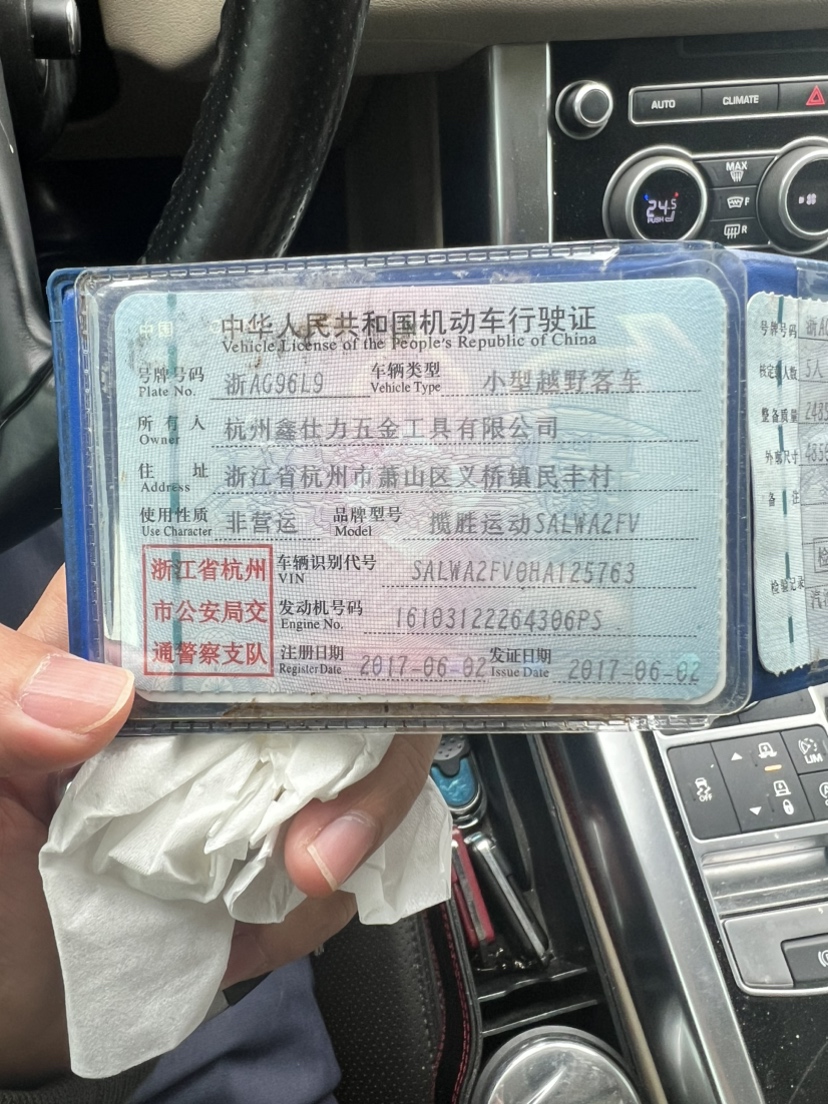 AUTO
CLIMATE
MAX
24.5
PUSH
F
R
中华人民共和国机动车行驶证
Vehicle License of the People's Republic of China
号牌号码 浙AG96L9 车辆类型 小型越野客车
Plate No. Vehicle Type
所有人 杭州鑫仕力五金工具有限公司
Owner
住址 浙江省杭州市萧山区义桥镇民丰村
Address
使用性质 非营运 品牌型号 揽胜运动SALWA2FV
Use Character Model
浙江省杭州
市公安局交
通警察支队
车辆识别代号 SALWA2FV0HA125763
VIN
发动机号码 16103122264306PS
Engine No.
注册日期 2017-06-02 发证日期 2017-06-02
Register Date Issue Date
号牌号码 浙A
核定载人数 5人
整备质量
外廓尺寸
备注
检验记录
OFF
LIM